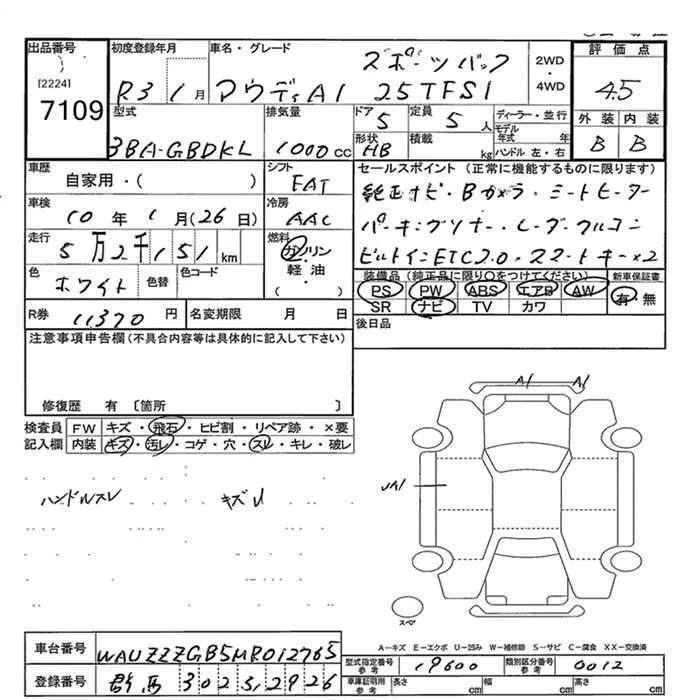 出品番号 初度登録年月 車名・グレード 評価点
[2224]
7109
R3 1月 アウディA1 スポーツバック 25TFSI 2WD・4WD 4.5
型式 排気量 ドア 定員 ディーラー・並行 外装 内装
3BA-GBDKL 1000cc 5 5人 モデル年式 年 B B
形状 積載 ハンドル 左・右
HB kg
車歴 シフト セールスポイント(正常に機能するものに限ります)
自家用・( ) FAT 純正ナビ・Bカメラ・シートヒーター
車検 冷房
10年1月(26日) AAC パーキングソナー・レーダークルコン
走行 燃料
5万2千151km ガソリン・軽油・( ) ビルトインETC2.0・スマートキー×2
色 色替 色コード 装備品(純正品に限り○をつけてください) 新車保証書
ホワイト PS PW ABS エアB AW 有・無
SR ナビ TV カワ
R券 11370円 名変期限 月 日 後日品
注意事項申告欄(不具合内容等は具体的に記入して下さい)
修復歴 有〔箇所 〕
検査員 FW キズ・飛石・ヒビ割・リペア跡・×要
記入欄 内装 キズ・汚レ・コゲ・穴・スレ・キレ・破レ
A1 A1
UA1
ハンドルスレ キズU
スペア
A-キズ E-エクボ U-凹み W-補修跡 S-サビ C-腐食 XX-交換済
車台番号 WAUZZZGB5MR012765
型式指定番号 参考 19600 類別区分番号 参考 0012
登録番号 群馬 302 そ 2926
車庫証明用 参考 長さ cm 幅 cm 高さ cm